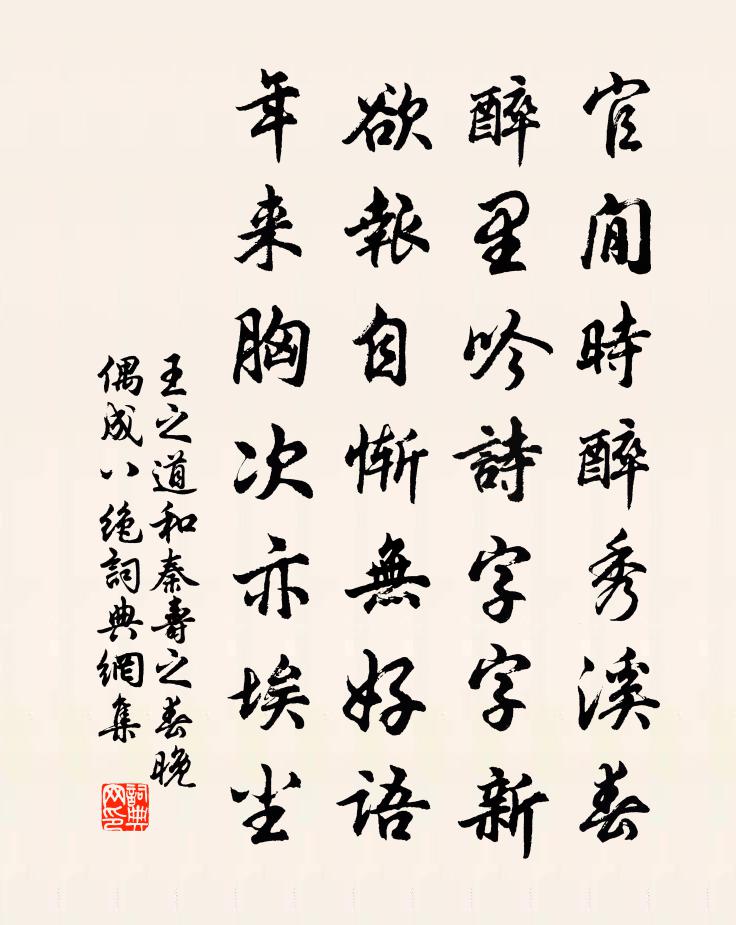 官閒時醉秀溪春
醉里吟詩字字新
欲報自慚無好語
年来胸次亦埃尘
王之道和秦壽之春晚
偶成八绝詞典網集
詞典网印